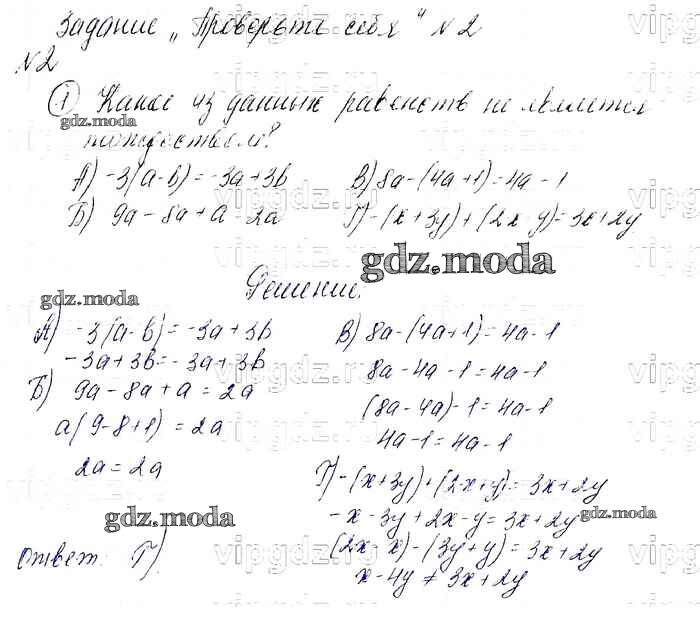 Задание „Проверьте себя" №2
№2
① Какое из данных равенств не является
тождеством?
gdz.moda
А) -3(a-b)=-3a+3b
В) 8a-(4a+1)=4a-1
Б) 9a-8a+a=2a
Г)-(x+3y)+(2x-y)=3x+2y
gdz.moda
Решение.
gdz.moda
А) -3(a-b)=-3a+3b
-3a+3b=-3a+3b
Б) 9a-8a+a=2a
a(9-8+1)=2a
2a=2a
В) 8a-(4a+1)=4a-1
8a-4a-1=4a-1
(8a-4a)-1=4a-1
4a-1=4a-1
Г)-(x+3y)+(2x+y)=3x+2y
-x-3y+2x-y=3x+2y
(2x-x)-(3y+y)=3x+2y
x-4y≠3x+2y
gdz.moda
gdz.moda
Ответ: Г).
vipgdz.ru